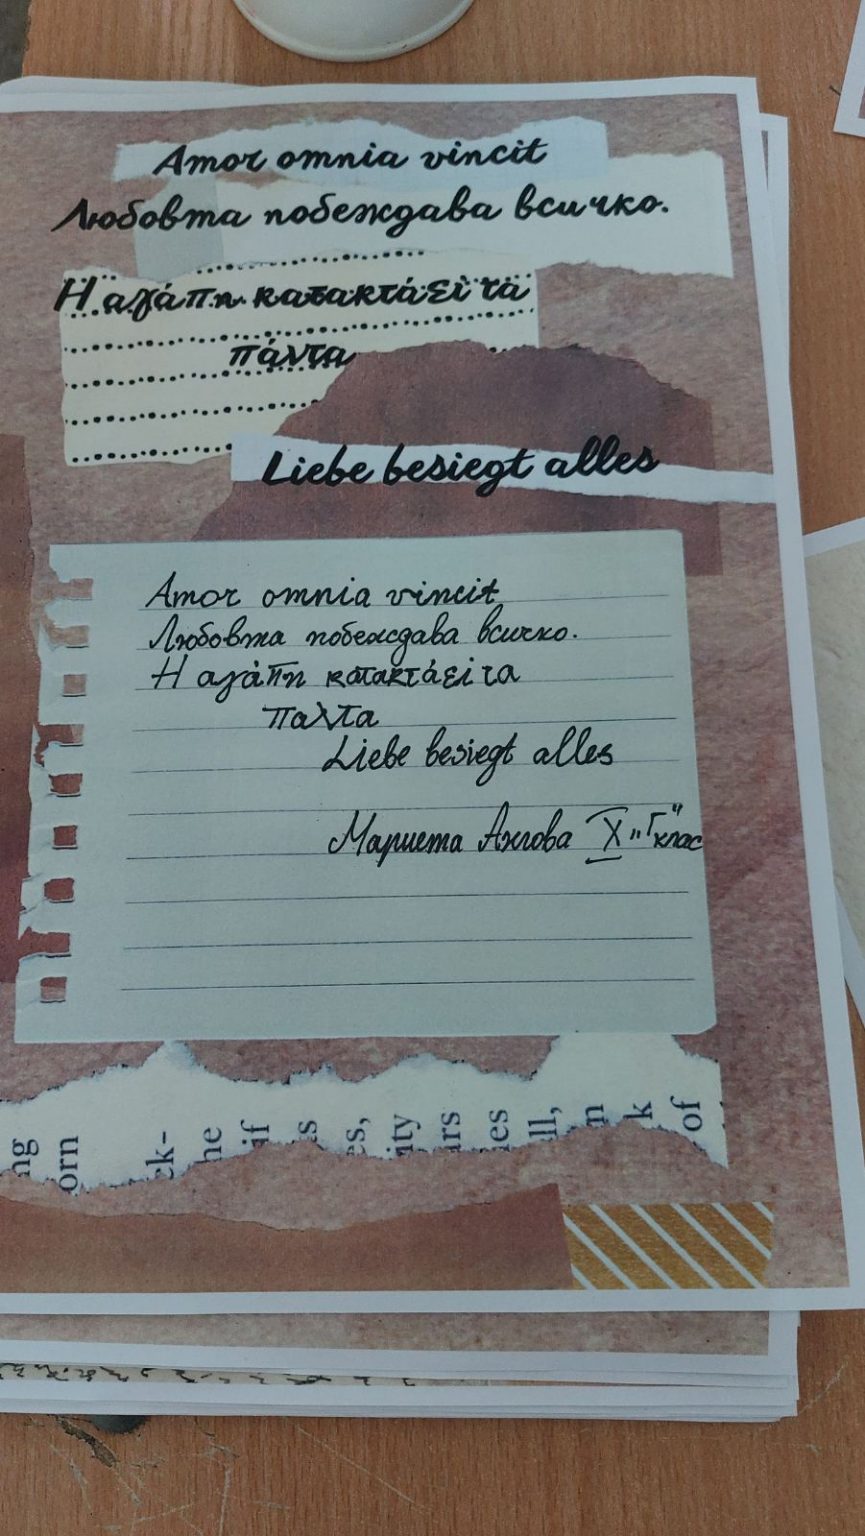 Amor omnia vincit
Любовта побеждава всичко.
Η αγάπη κατακτάει τα
πάντα
Liebe besiegt alles
Amor omnia vincit
Любовта побеждава всичко.
Η αγάπη κατακτάει τα
παλτα
Liebe besiegt alles
Мариета Ангова X "Г" клас
ng
orn
ck-
he
if
is
es,
ity
ars
ies
ll,
n
k
of